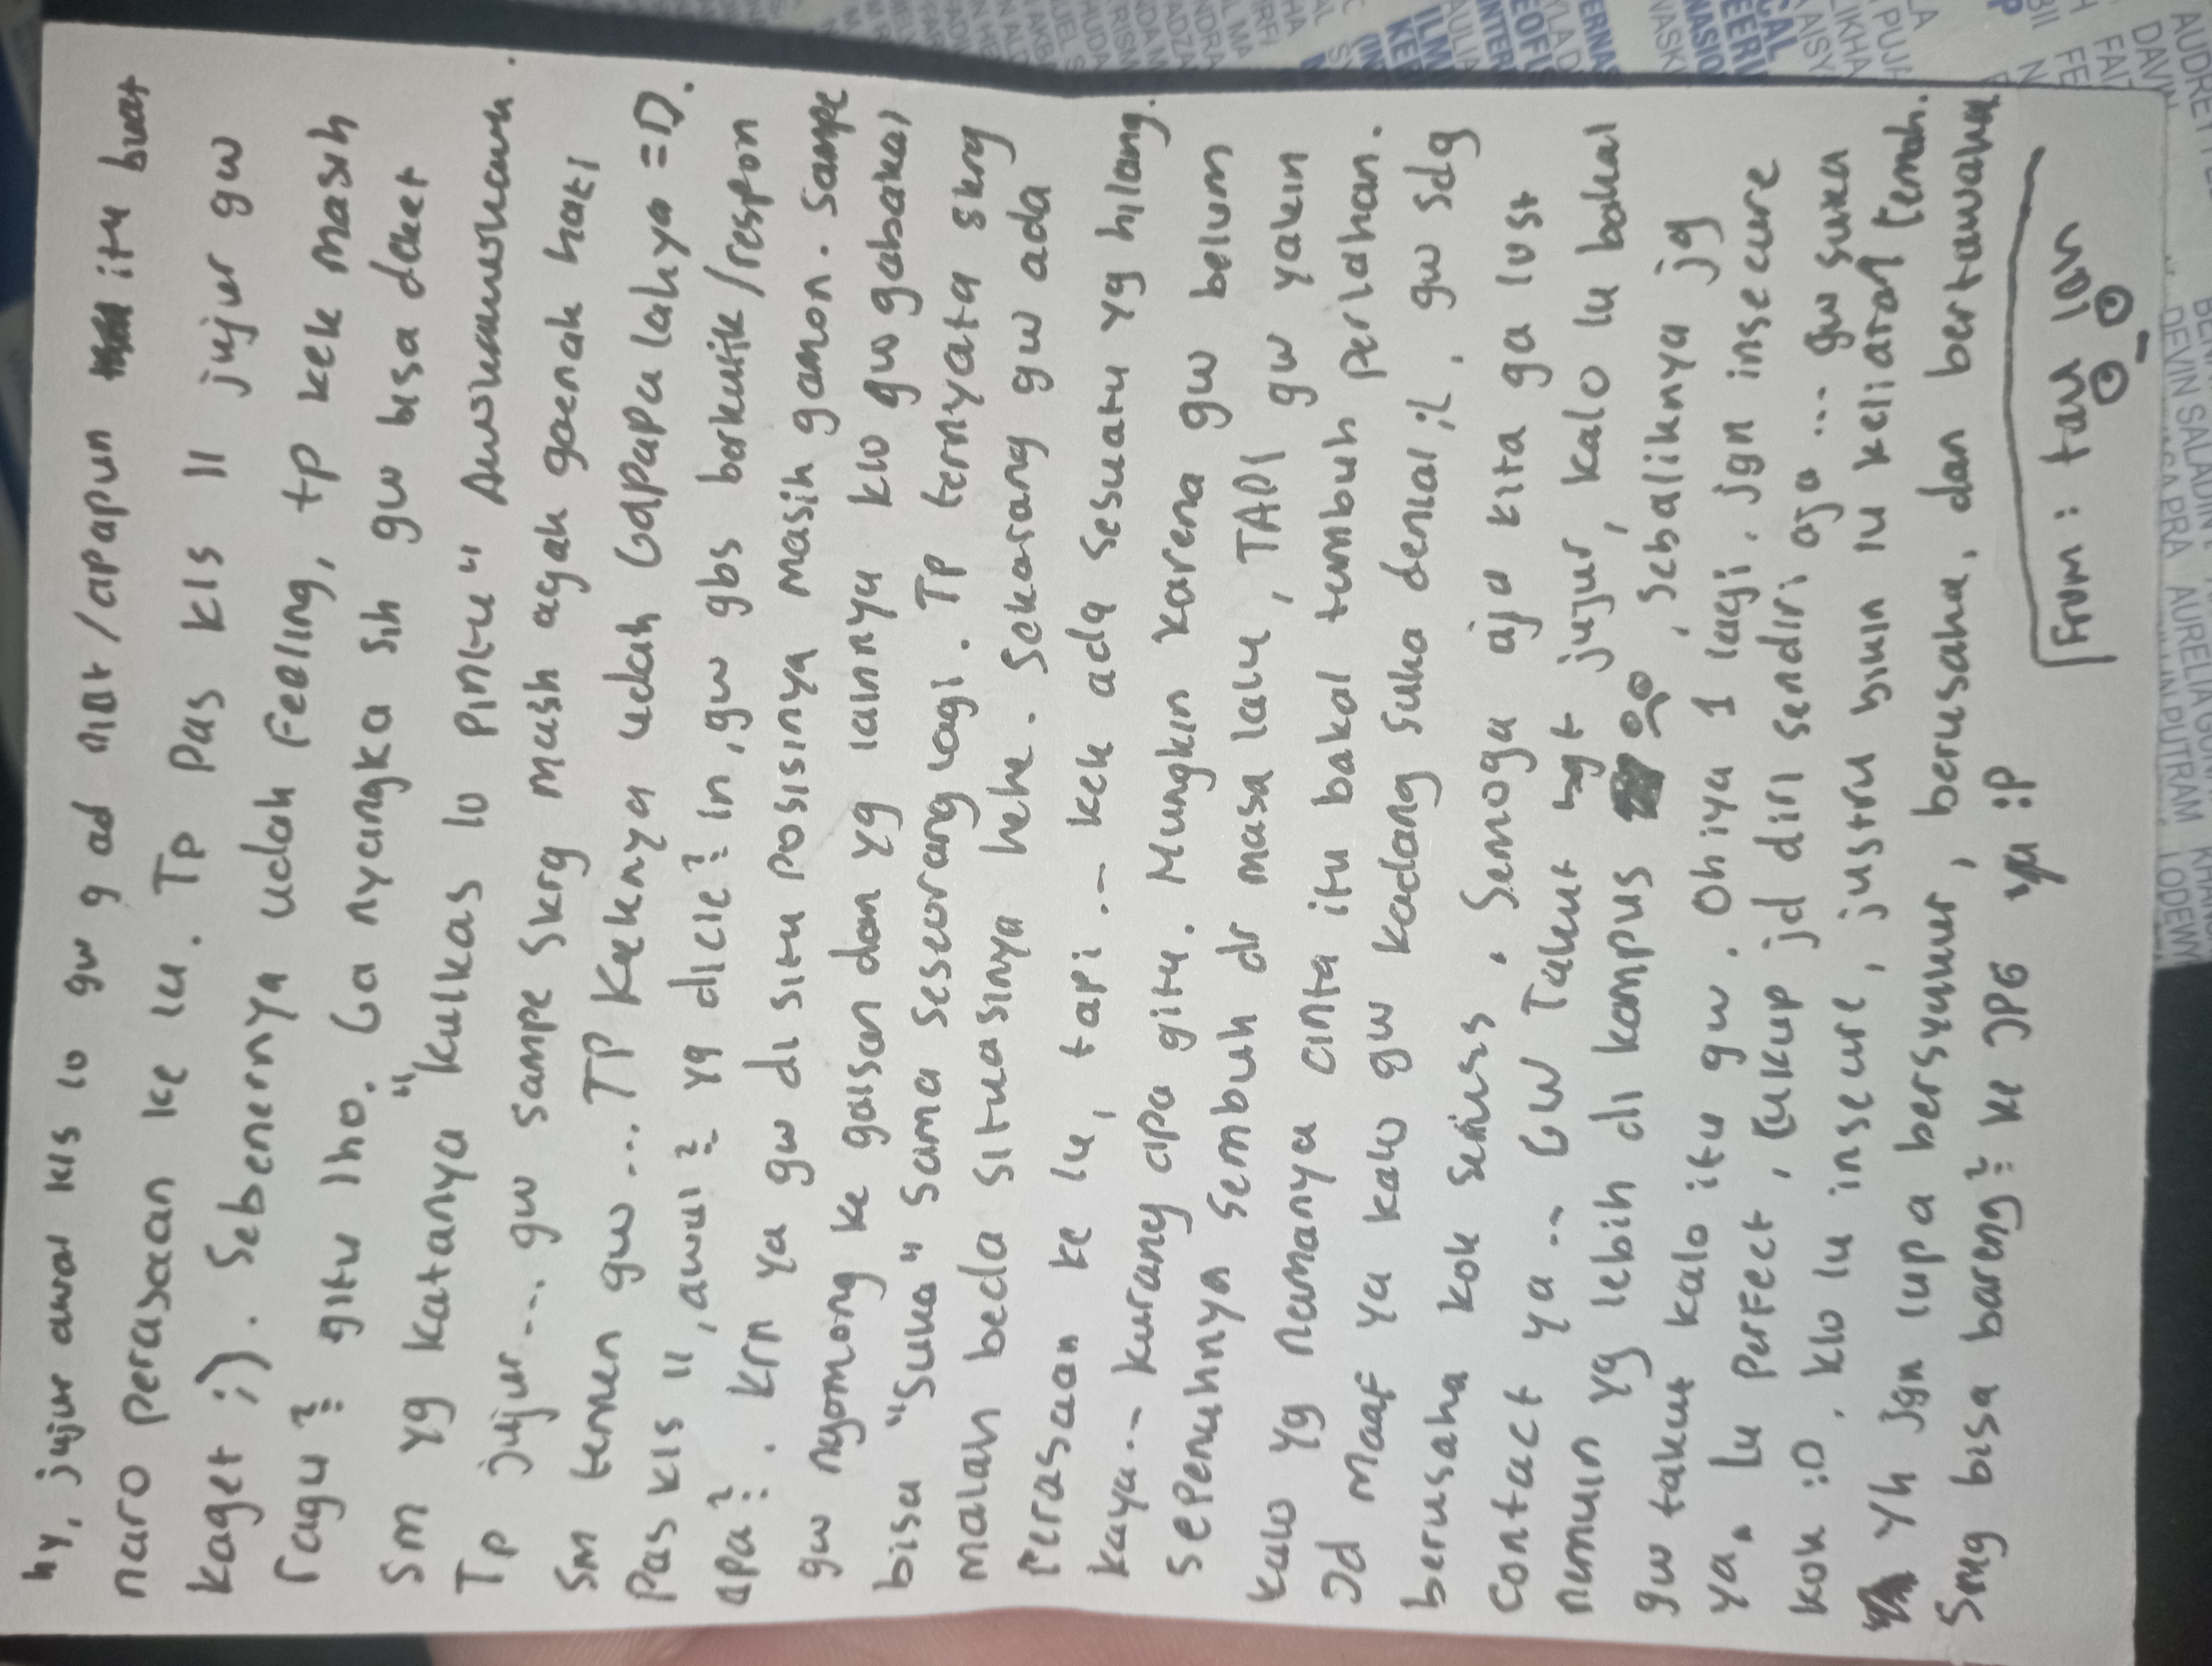 hy, jujur awal kls 10 gw g ad niat/apapun itu buat
naro perasaan ke lu. Tp pas kls 11 jujur gw
kaget ;). Sebenernya udah feeling, tp kek masih
ragu? gitu lho. Ga nyangka sih gw bisa deket
sm yg katanya "kulkas 10 pintu" Awokawokawk.
Tp jujur... gw sampe skrg masih agak gaenak hati
sm temen gw... TP Keknya udah Gapapa lahya =D.
Pas kls 11, awal? yg dicie?in, gw gbs berkutik/respon
apa?. krn ya gw di situ posisinya masih gamon. Sampe
gw ngomong ke gaisan dan yg lainnya klo gw gabakal
bisa "suka" sama seseorang lagi. TP ternyata skrg
malah beda situasinya hehe. Sekarang gw ada
Perasaan ke lu, tapi .. kek ada sesuatu yg hilang.
kaya.. kurang apa gitu. Mungkin karena gw belum
sepenuhnya sembuh dr masa lalu, TAPI gw yakin
kalo yg namanya cinta itu bakal tumbuh perlahan.
Jd Maaf ya kalo gw kadang suka denial ;(. gw sdg
berusaha kok seriuss. Semoga aja kita ga lost
contact ya.. GW Takut bgt jujur, kalo lu bakal
nemuin yg lebih di kampus, sebaliknya jg
gw takut kalo itu gw. Oh iya 1 lagi, jgn insecure
ya. Lu Perfect, cukup jd diri sendiri aja... gw suka
kok :D. klo lu insecure, justru bikin lu keliatan lemah.
Yh jgn lupa bersyukur, berusaha, dan bertawakal
Smg bisa bareng? ke JPG ya :P
From: tau lah
DEVIN SALADIN
LODEW